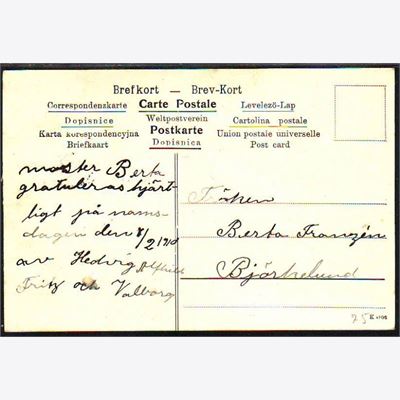 Brefkort — Brev-Kort
Correspondenzkarte Carte Postale Levelező-Lap
Dopisnice Weltpostverein Cartolina postale
Karta korespondencyjna Postkarte Union postale universelle
Briefkaart Dopisnica Post card
moster Berta
gratuleras hjärt-
ligt på namns-
dagen den 8/2 1910
av Hedvig Alfhild
Fritz och Valborg
Fröken
Berta Franzén
Björkelund
75